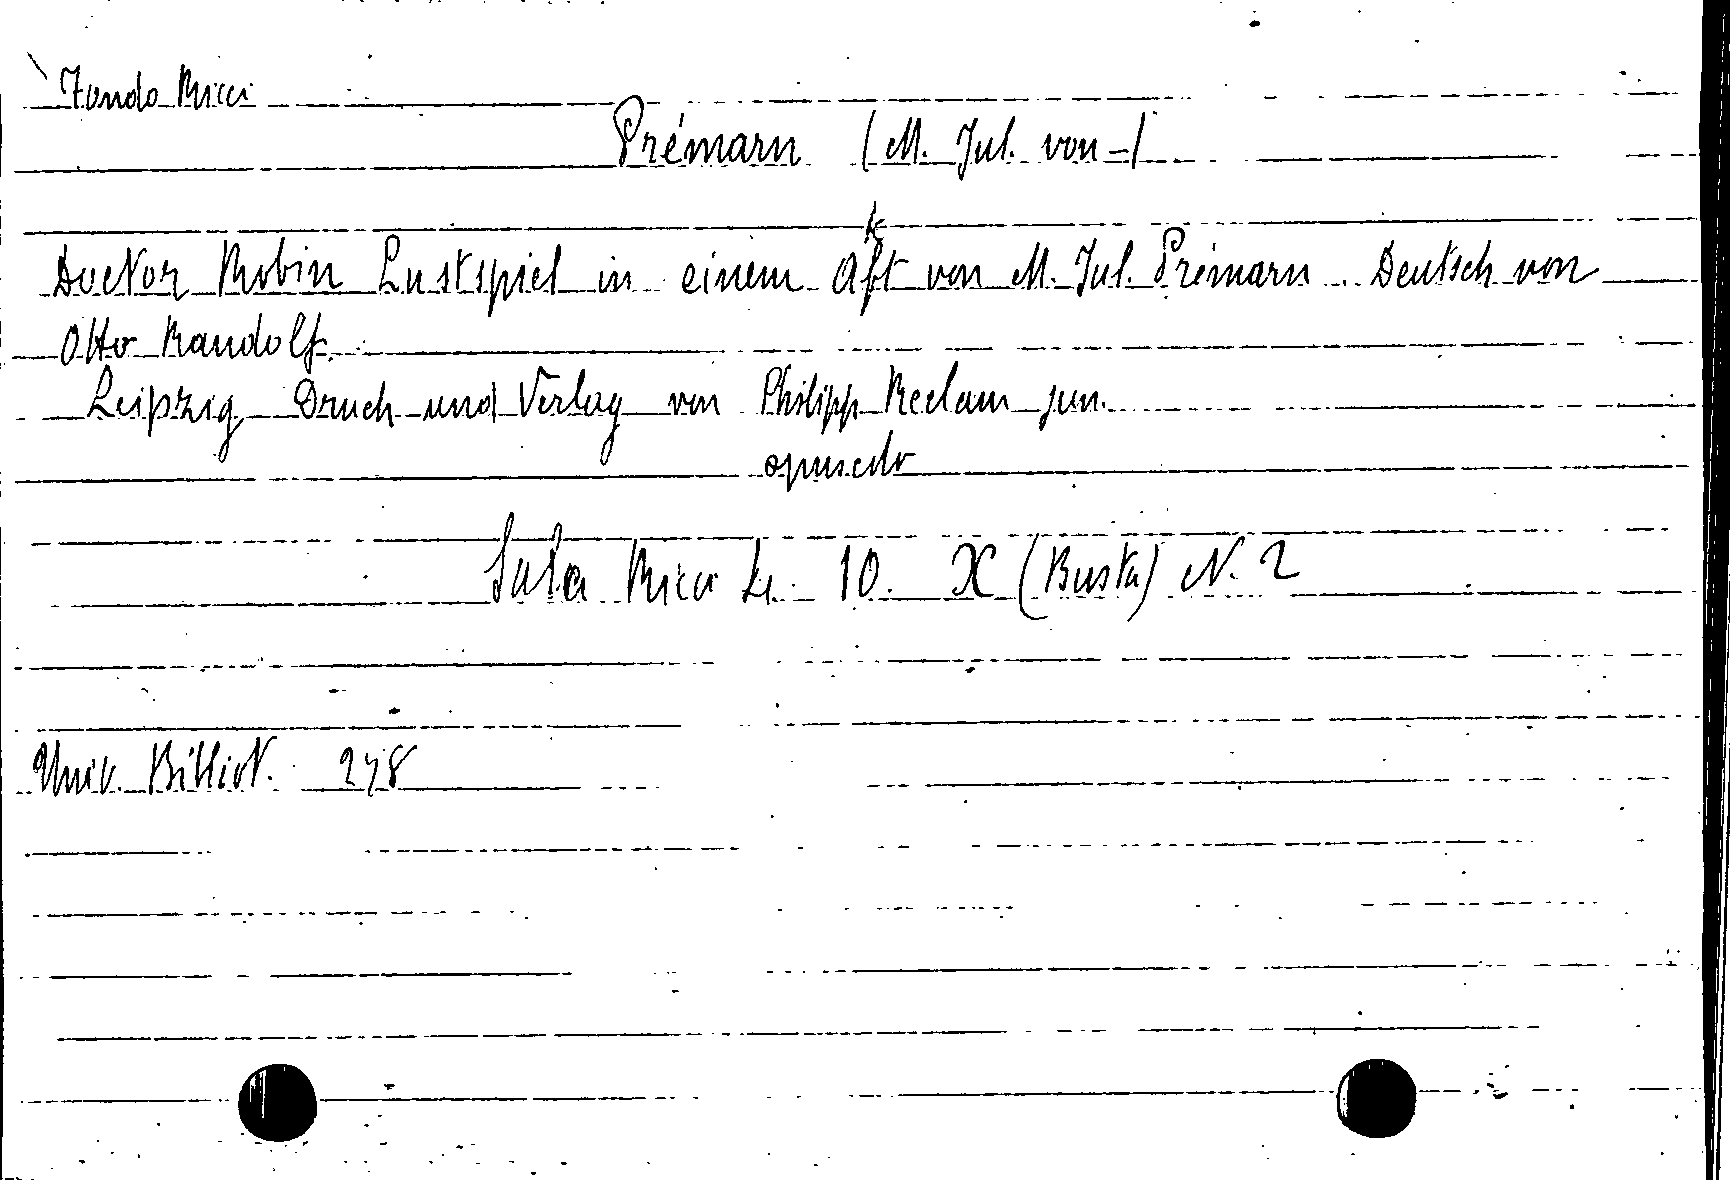 Fondo Ricci
Prémarn (M. Jul. von -)
Doctor Robin Lustspiel in einem Akt von M. Jul. Prémarn. Deutsch von
Otto Randolf.
Leipzig Druch und Verlag von Philipp Reclam jun.
opuscolo
Sala Ricci L. 10. X (Busta) N. 2
Univ. Bibliot. 278